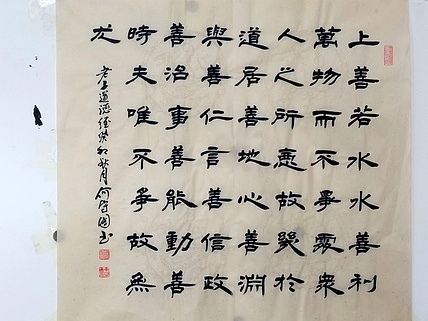 上善若水水善利
萬物而不爭處衆
人之所惡故幾於
道居善地心善淵
與善仁言善信政
善治事善能動善
時夫唯不爭故無
尤
老子道德經癸卯秋月何守國书